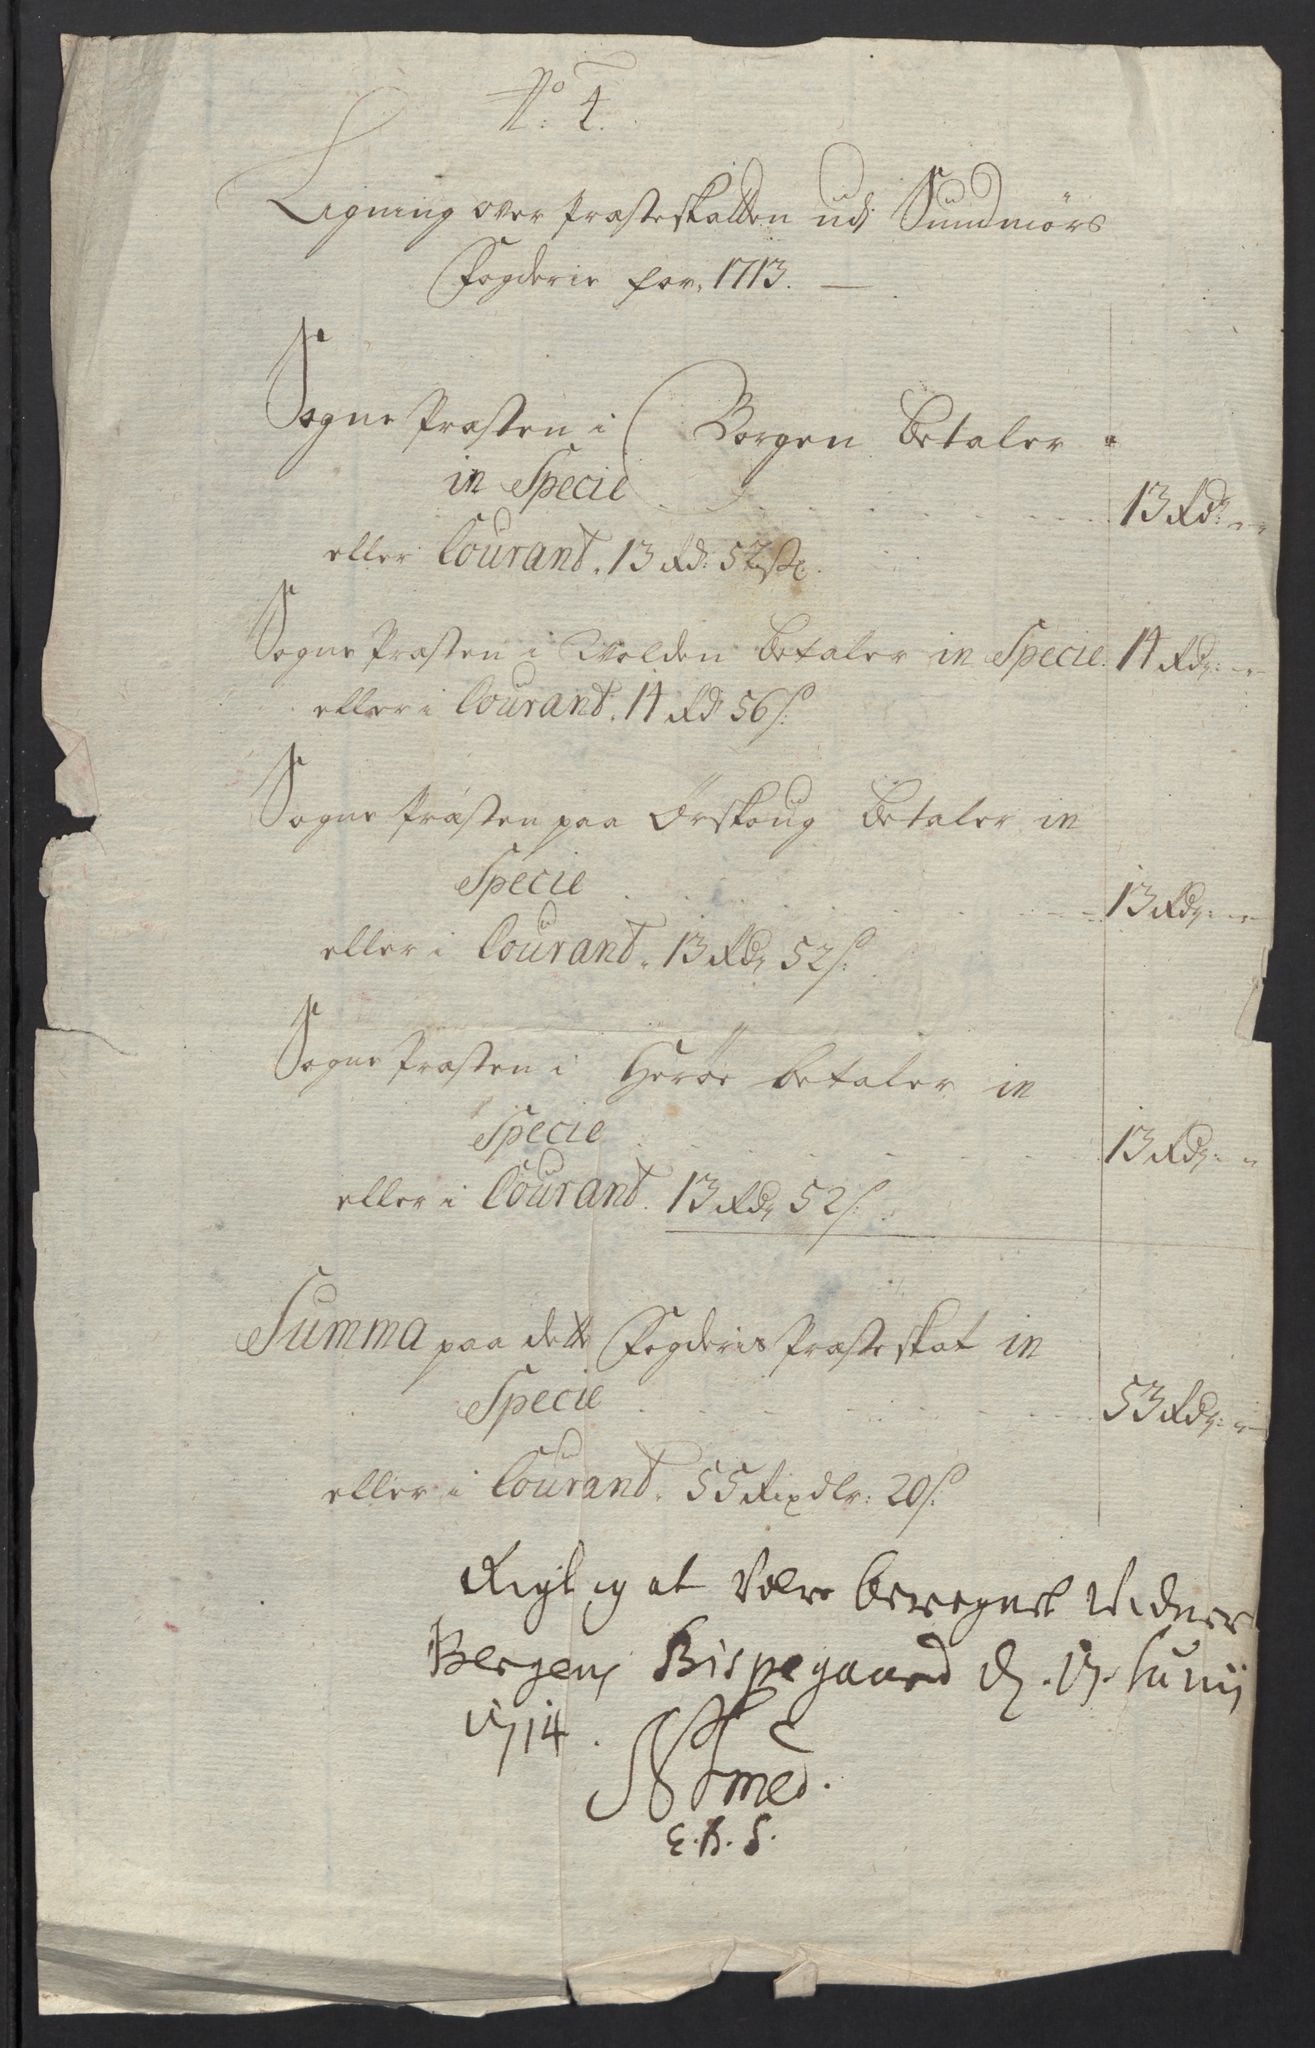 No: 4.
Ligning over Præsteskatten udi Sundmörs
Fogderie for 1713.
Sogne Præsten i Borgen betaler
in Specie 13 Rdr
eller Courant. 13 Rd: 52 sk.
Sogne Præsten i Wolden betaler in Specie. 14 Rdr:
eller i Courant. 14 Rd 56 s:
Sogne Præsten paa Ørskoug betaler in
Specie 13 Rdr:
eller i Courant. 13 Rdr 52 s:
Sogne Præsten i Herøe betaler in
Specie 13 Rdr:
eller i Courant. 13 Rdr 52 s:
Summa paa dette Fogderies Præsteskat in
Specie 53 Rdr:
eller i Courant. 55 Rixdlr: 20 s:
Rigtig at være beregnet vidner
Bergens Bispegaard d. 17. Junij
1714.
N Smed.
E. B. S.